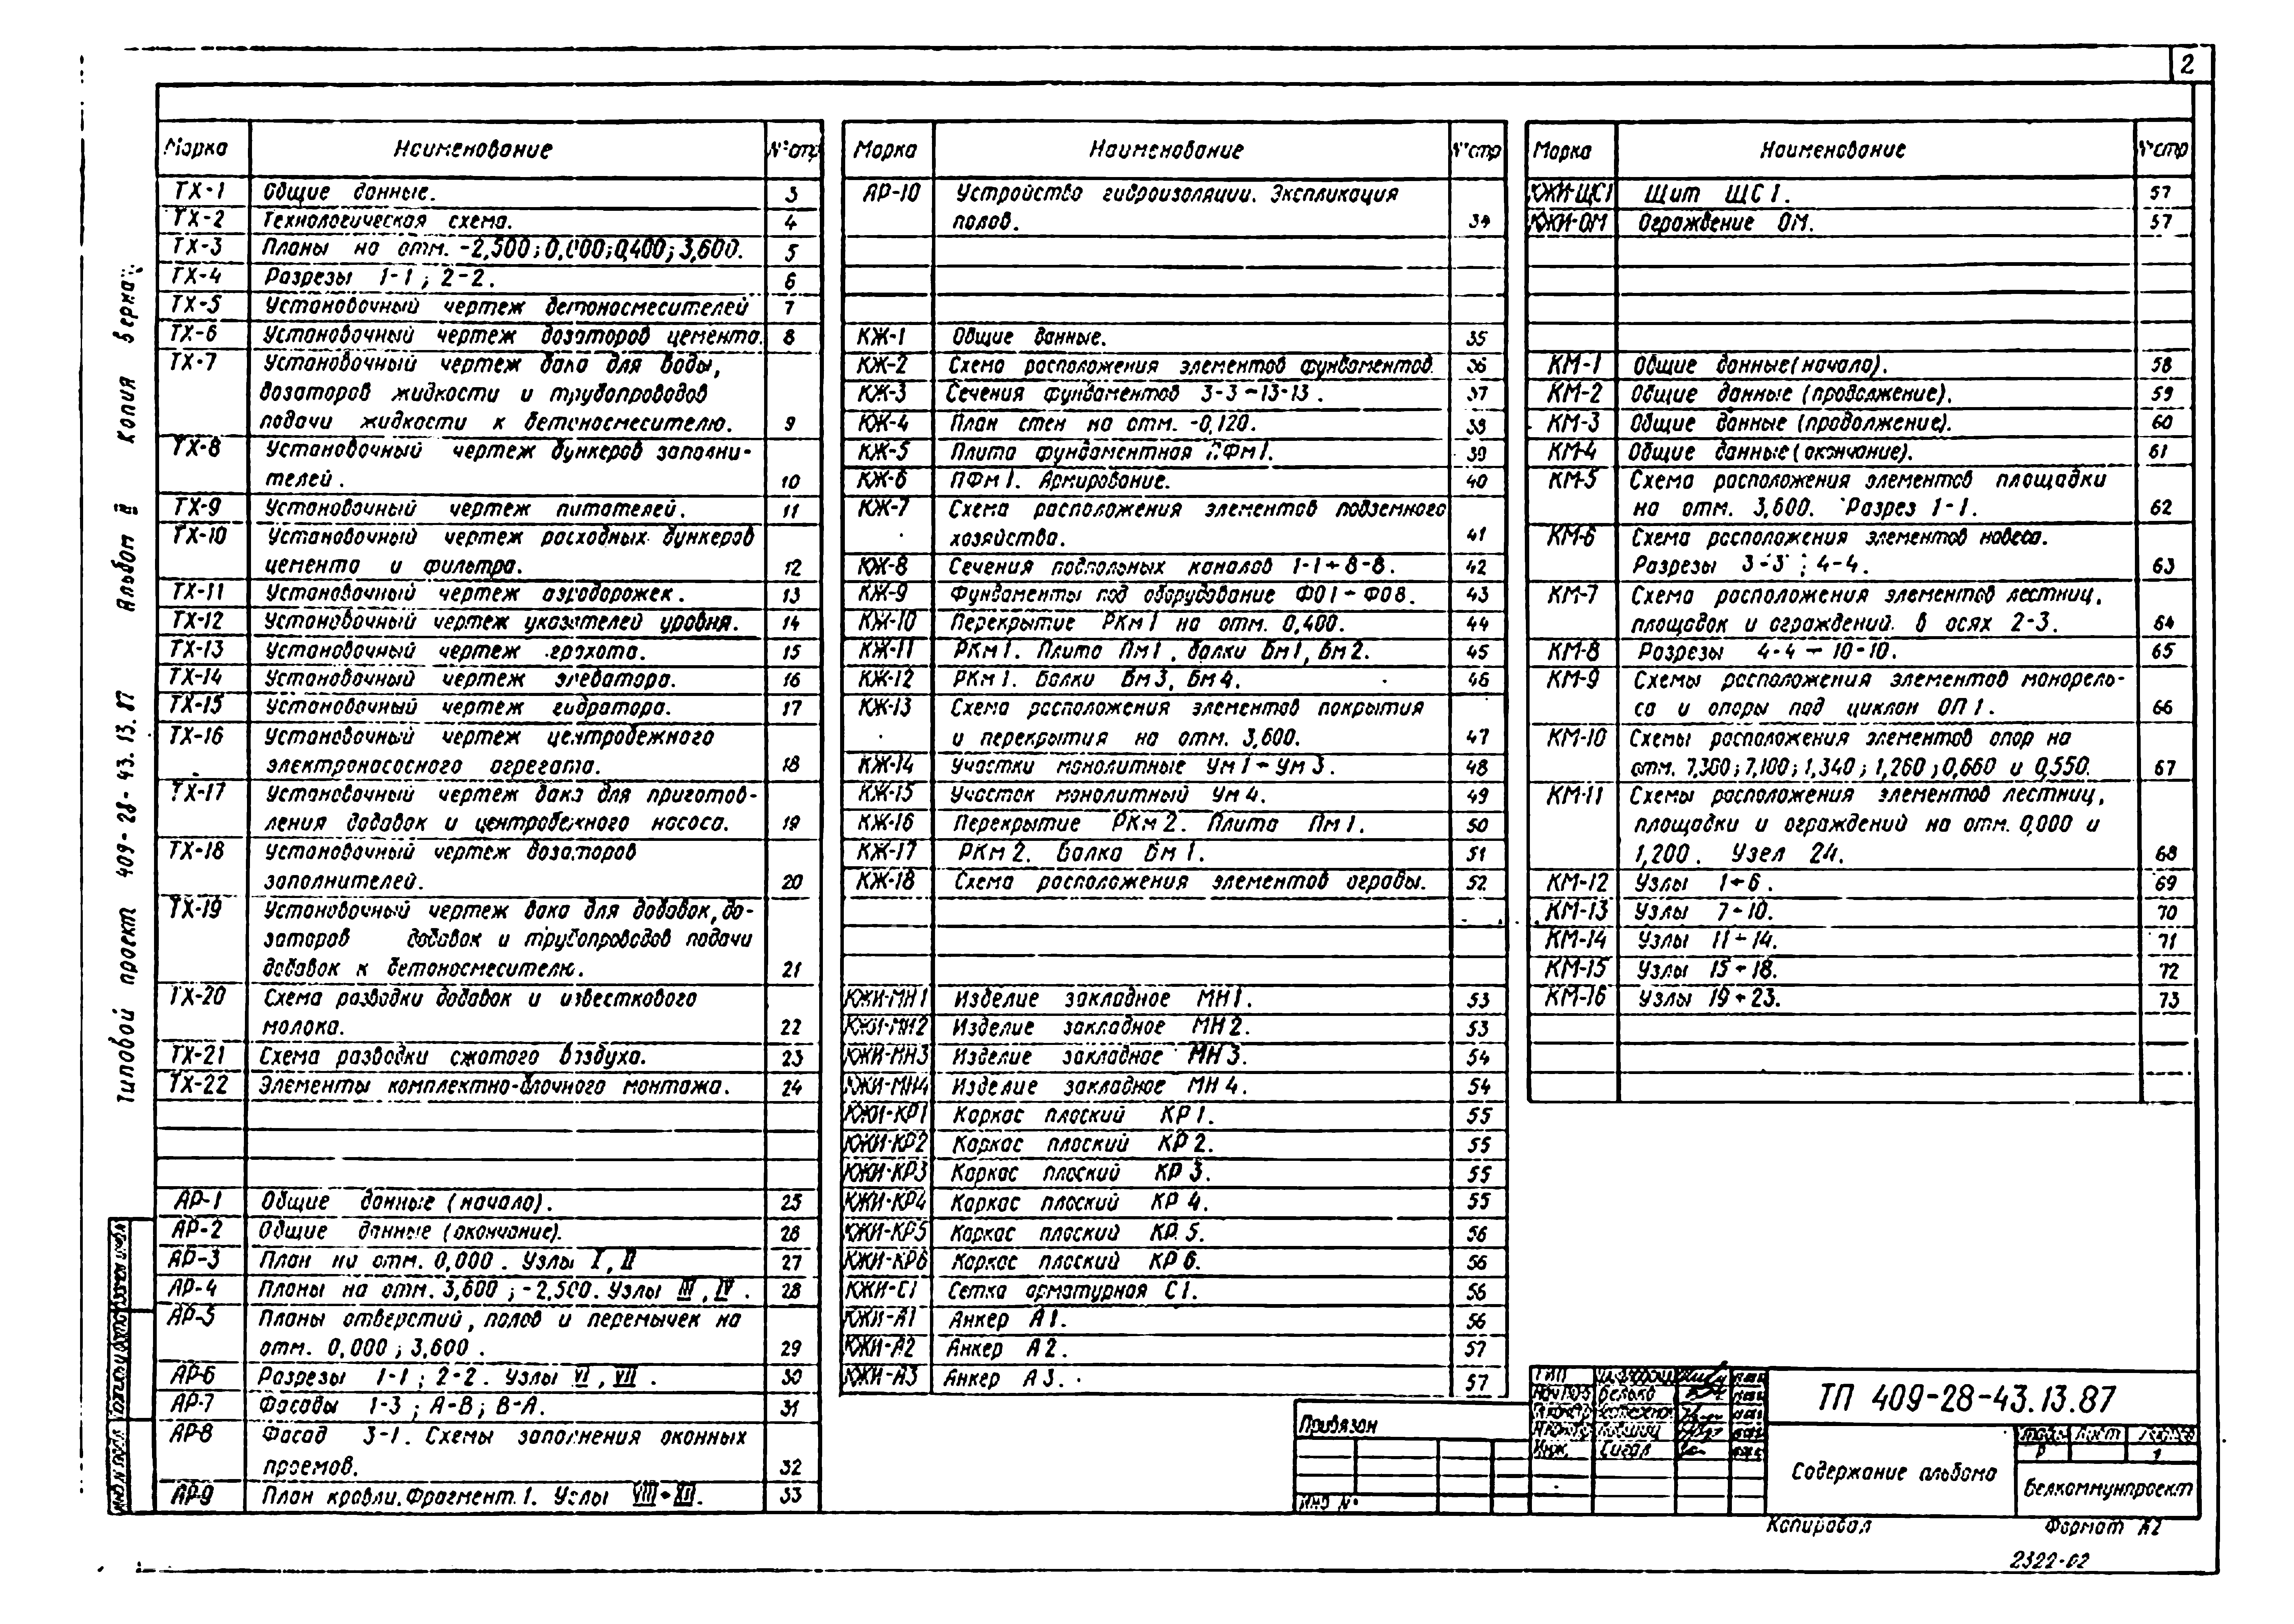 2
Марка Наименование № стр
ТХ-1 Общие данные. 3
ТХ-2 Технологическая схема. 4
ТХ-3 Планы на отм. -2,500; 0,000; 0,400; 3,600. 5
ТХ-4 Разрезы 1-1; 2-2. 6
ТХ-5 Установочный чертеж бетоносмесителей 7
ТХ-6 Установочный чертеж дозаторов цемента. 8
ТХ-7 Установочный чертеж бака для воды,
дозаторов жидкости и трубопроводов
подачи жидкости к бетоносмесителю. 9
ТХ-8 Установочный чертеж бункеров заполни-
телей. 10
ТХ-9 Установочный чертеж питателей. 11
ТХ-10 Установочный чертеж расходных бункеров
цемента и фильтра. 12
ТХ-11 Установочный чертеж аэродорожек. 13
ТХ-12 Установочный чертеж указателей уровня. 14
ТХ-13 Установочный чертеж грохота. 15
ТХ-14 Установочный чертеж элеватора. 16
ТХ-15 Установочный чертеж гидратора. 17
ТХ-16 Установочный чертеж центробежного
электронасосного агрегата. 18
ТХ-17 Установочный чертеж бака для приготов-
ления добавок и центробежного насоса. 19
ТХ-18 Установочный чертеж дозаторов
заполнителей. 20
ТХ-19 Установочный чертеж бака для добавок, до-
заторов добавок и трубопроводов подачи
добавок к бетоносмесителю. 21
ТХ-20 Схема разводки добавок и известкового
молока. 22
ТХ-21 Схема разводки сжатого воздуха. 23
ТХ-22 Элементы комплектно-блочного монтажа. 24
АР-1 Общие данные (начало). 25
АР-2 Общие данные (окончание). 26
АР-3 План на отм. 0,000. Узлы I, II 27
АР-4 Планы на отм. 3,600; -2,500. Узлы III, IV. 28
АР-5 Планы отверстий, полов и перемычек на
отм. 0,000; 3,600. 29
АР-6 Разрезы 1-1; 2-2. Узлы VI, VII. 30
АР-7 Фасады 1-3; А-В; В-А. 31
АР-8 Фасад 3-1. Схемы заполнения оконных
проемов. 32
АР-9 План кровли. Фрагмент 1. Узлы VIII÷XII. 33
Марка Наименование № стр
АР-10 Устройство гидроизоляции. Экспликация
полов. 34
КЖ-1 Общие данные. 35
КЖ-2 Схема расположения элементов фундаментов. 36
КЖ-3 Сечения фундаментов 3-3÷13-13. 37
КЖ-4 План стен на отм. -0,120. 38
КЖ-5 Плита фундаментная ПФм1. 39
КЖ-6 ПФм1. Армирование. 40
КЖ-7 Схема расположения элементов подземного
хозяйства. 41
КЖ-8 Сечения подпольных каналов 1-1÷8-8. 42
КЖ-9 Фундаменты под оборудование Ф01÷Ф08. 43
КЖ-10 Перекрытие РКм1 на отм. 0,400. 44
КЖ-11 РКм1. Плита Пм1, балки Бм1, Бм2. 45
КЖ-12 РКм1. Балки Бм3, Бм4. 46
КЖ-13 Схема расположения элементов покрытия
и перекрытия на отм. 3,600. 47
КЖ-14 Участки монолитные Ум1÷Ум3. 48
КЖ-15 Участок монолитный Ум4. 49
КЖ-16 Перекрытие РКм2. Плита Пм1. 50
КЖ-17 РКм2. Балка Бм1. 51
КЖ-18 Схема расположения элементов ограды. 52
КЖИ-МН1 Изделие закладное МН1. 53
КЖИ-МН2 Изделие закладное МН2. 53
КЖИ-МН3 Изделие закладное МН3. 54
КЖИ-МН4 Изделие закладное МН4. 54
КЖИ-КР1 Каркас плоский КР1. 55
КЖИ-КР2 Каркас плоский КР2. 55
КЖИ-КР3 Каркас плоский КР3. 55
КЖИ-КР4 Каркас плоский КР4. 55
КЖИ-КР5 Каркас плоский КР5. 56
КЖИ-КР6 Каркас плоский КР6. 56
КЖИ-С1 Сетка арматурная С1. 56
КЖИ-А1 Анкер А1. 56
КЖИ-А2 Анкер А2. 57
КЖИ-А3 Анкер А3. 57
Марка Наименование № стр
КЖИ-ЩС1 Щит ЩС1. 57
КЖИ-ОМ Ограждение ОМ. 57
КМ-1 Общие данные (начало). 58
КМ-2 Общие данные (продолжение). 59
КМ-3 Общие данные (продолжение). 60
КМ-4 Общие данные (окончание). 61
КМ-5 Схема расположения элементов площадки
на отм. 3,600. Разрез 1-1. 62
КМ-6 Схема расположения элементов навеса.
Разрезы 3-3; 4-4. 63
КМ-7 Схема расположения элементов лестниц,
площадок и ограждений в осях 2-3. 64
КМ-8 Разрезы 4-4÷10-10. 65
КМ-9 Схемы расположения элементов монорель-
са и опоры под циклон ОП1. 66
КМ-10 Схемы расположения элементов опор на
отм. 7,300; 7,100; 1,340; 1,260; 0,660 и 0,550. 67
КМ-11 Схемы расположения элементов лестниц,
площадки и ограждений на отм. 0,000 и
1,200. Узел 24. 68
КМ-12 Узлы 1÷6. 69
КМ-13 Узлы 7÷10. 70
КМ-14 Узлы 11÷14. 71
КМ-15 Узлы 15÷18. 72
КМ-16 Узлы 19÷23. 73
Типовой проект 409-28-43.13.87 Альбом II Копия верна:
Привязан
Инв №
ГИП
Инж. Сигал
ТП 409-28-43.13.87
Содержание альбома
Лист
Р 1
Белкоммунпроект
Копировал Формат А2
2322-02